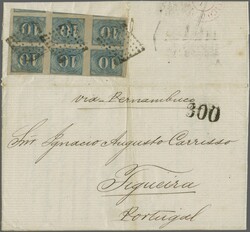 10 10 10
10 10 10
via Pernambuco
300
Snr Ignacio Augusto Carrisso
Figueira
Portugal